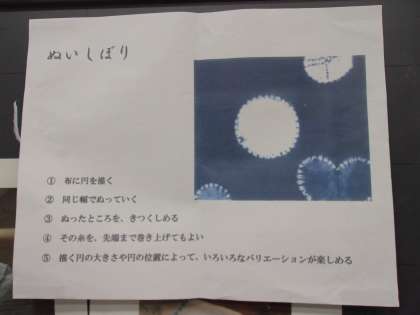 ぬいしぼり
① 布に円を描く
② 同じ幅でぬっていく
③ ぬったところを、きつくしめる
④ その糸を、先端まで巻き上げてもよい
⑤ 描く円の大きさや円の位置によって、いろいろなバリエーションが楽しめる